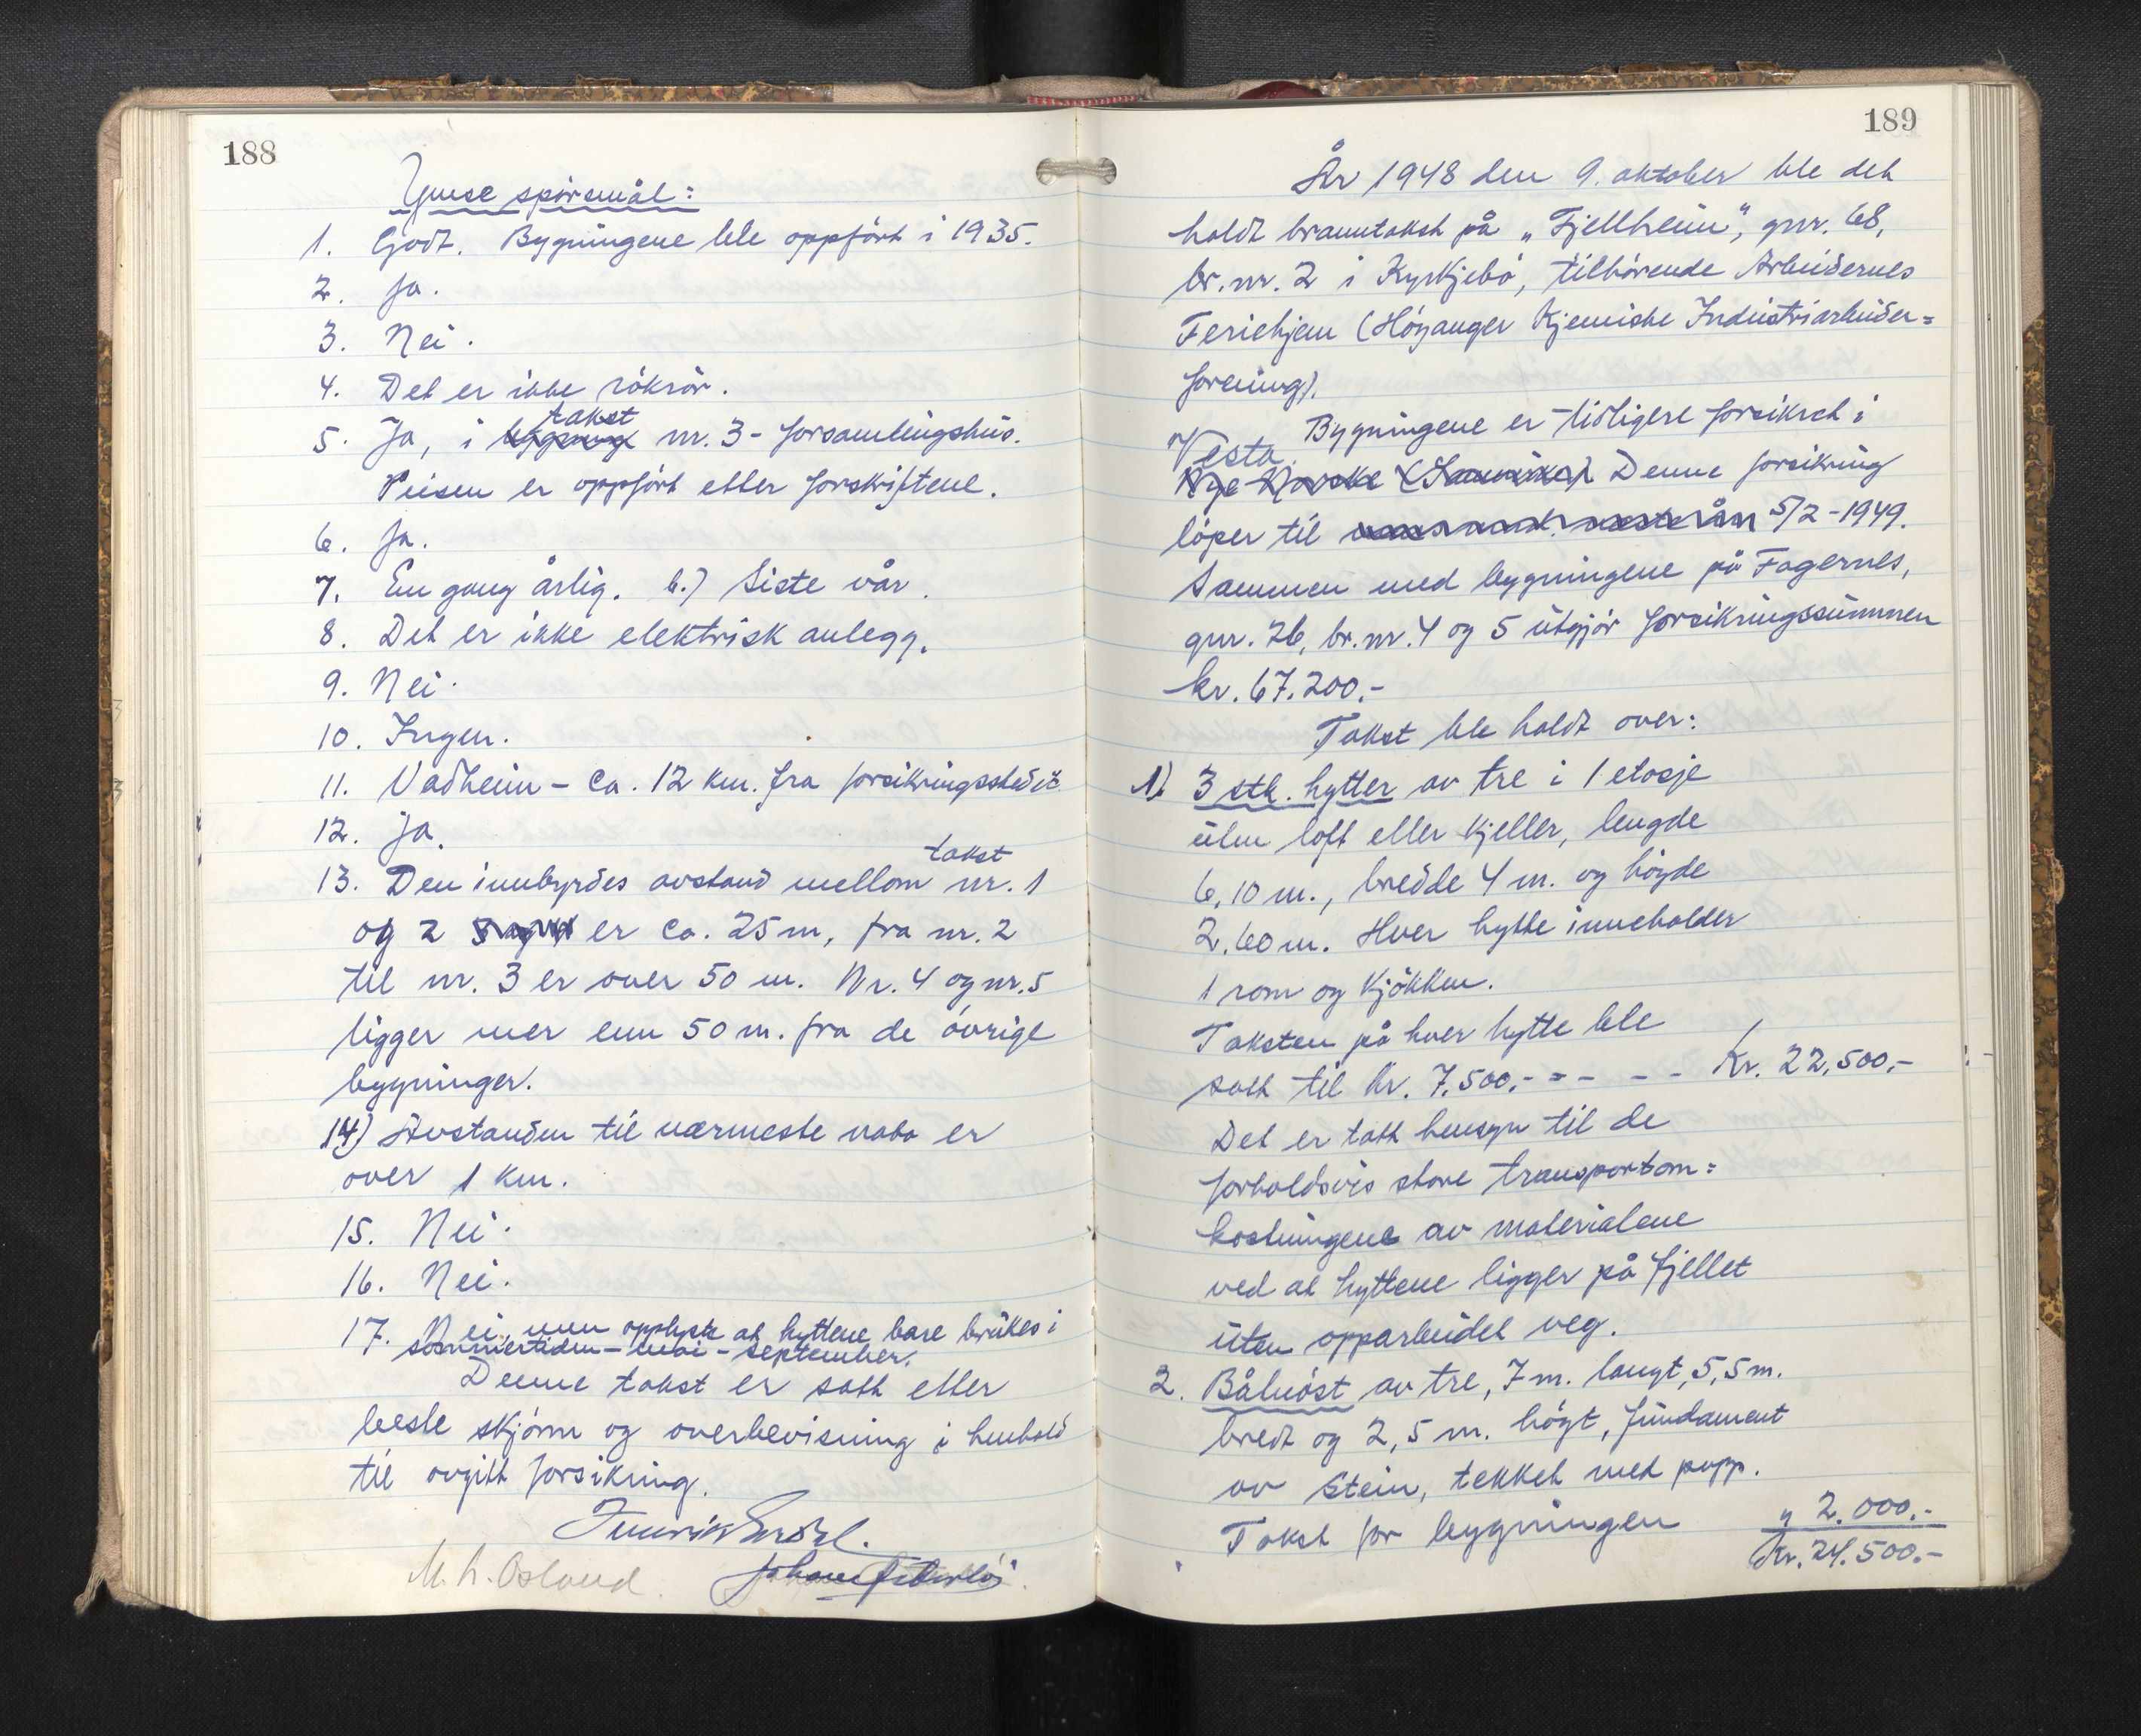 188
Ymse spörsmål:
1. Godt. Bygningene ble oppfört i 1935.
2. Ja.
3. Nei.
4. Det er ikke rökrör.
takst
5. Ja, i bygning nr. 3 - forsamlingshus.
Peisen er oppfört etter forskriftene.
6. Ja.
7. En gang årlig. b.) Siste vår.
8. Det er ikke elektrisk anlegg.
9. Nei.
10. Ingen.
11. Vadheim - Ca. 12 km. fra forsikringsstedet
12. Ja.
takst
13. Den innbyrdes avstand mellom nr. 1
og 2 er ca. 25 m, fra nr. 2
til nr. 3 er over 50 m. Nr. 4 og nr. 5
ligger mer enn 50 m. fra de övrige
bygninger.
14) Avstanden til nærmeste nabo er
over 1 km.
15. Nei.
16. Nei.
17. Nei, men opplyste at hyttene bare brukes i
sommertiden - mai - september.
Denne takst er satt etter
beste skjönn og overbevisning i henhold
til avgitt forsikring.
M. A. Osland
189
År 1948 den 9. oktober ble det
holdt branntakst på „Fjellheim", gnr. 68,
br. nr. 2 i Kyrkjebö, tilhörende Arbeidernes
Feriehjem (Höyanger Kjemiske Industriarbeider=
forening).
Bygningene er tidligere forsikret i
Vesta.
Nye Norske Denne forsikring
löper til 5/2 - 1949.
Sammen med bygningene på Fagernes,
gnr. 76, br. nr. 4 og 5 utgjör forsikringssummen
kr. 67.200.-
Takst ble holdt over:
1) 3 stk. hytter av tre i 1 etasje
uten loft eller kjeller, lengde
6,10 m., bredde 4 m. og höyde
2.60 m. Hver hytte inneholder
1 rom og kjökken.
Taksten på hver hytte ble
satt til kr. 7.500.- = - - - Kr. 22.500.-
Det er tatt hensyn til de
forholdsvis store transportom=
kostningene av materialene
ved at hyttene ligger på fjellet
uten opparbeidet veg.
2. Båtnöst av tre, 7 m. langt, 5,5 m.
bredt og 2,5 m. högt, fundament
av stein, tekket med papp.
Takst for bygningen „ 2.000.-
Kr. 24.500.-